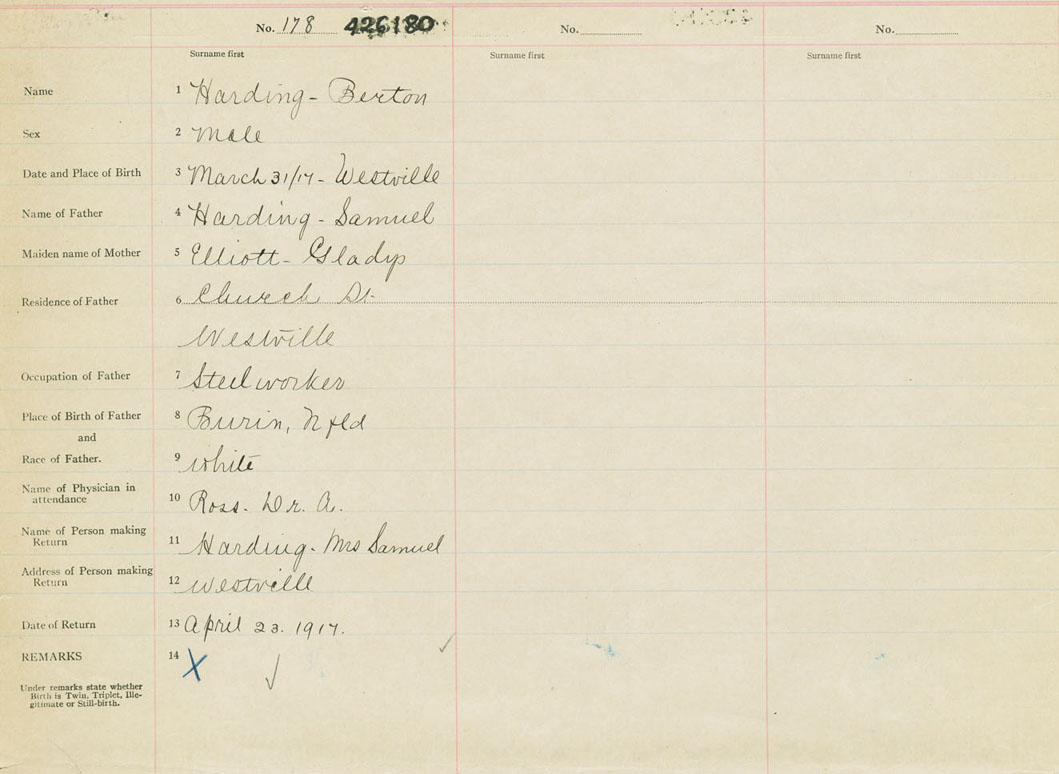 No. 178 426180 No. No.
Surname first Surname first Surname first
Name 1 Harding - Berton
Sex 2 Male
Date and Place of Birth 3 March 31/17 - Westville
Name of Father 4 Harding - Samuel
Maiden name of Mother 5 Elliott - Gladys
Residence of Father 6 Church St.
Westville
Occupation of Father 7 Steelworker
Place of Birth of Father 8 Burin, Nfld
and
Race of Father. 9 White
Name of Physician in
attendance 10 Ross. Dr. A.
Name of Person making
Return 11 Harding - Mrs Samuel
Address of Person making
Return 12 Westville
Date of Return 13 April 23. 1917.
REMARKS 14 X
Under remarks state whether
Birth is Twin, Triplet, Ille-
gitimate or Still-birth.